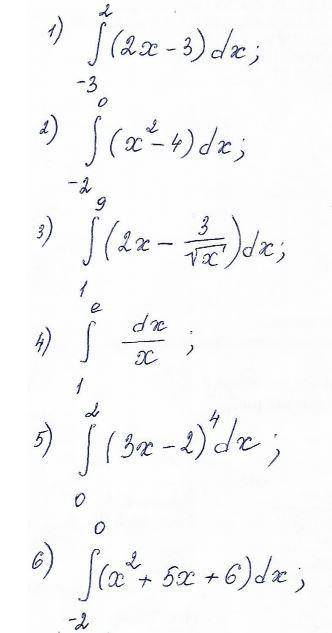 1) ∫_{-3}^{2} (2x - 3) dx;
2) ∫_{-2}^{0} (x² - 4) dx;
3) ∫_{1}^{9} (2x - 3/√x) dx;
4) ∫_{1}^{e} dx/x ;
5) ∫_{0}^{2} (3x - 2)⁴ dx;
6) ∫_{-2}^{0} (x² + 5x + 6) dx;